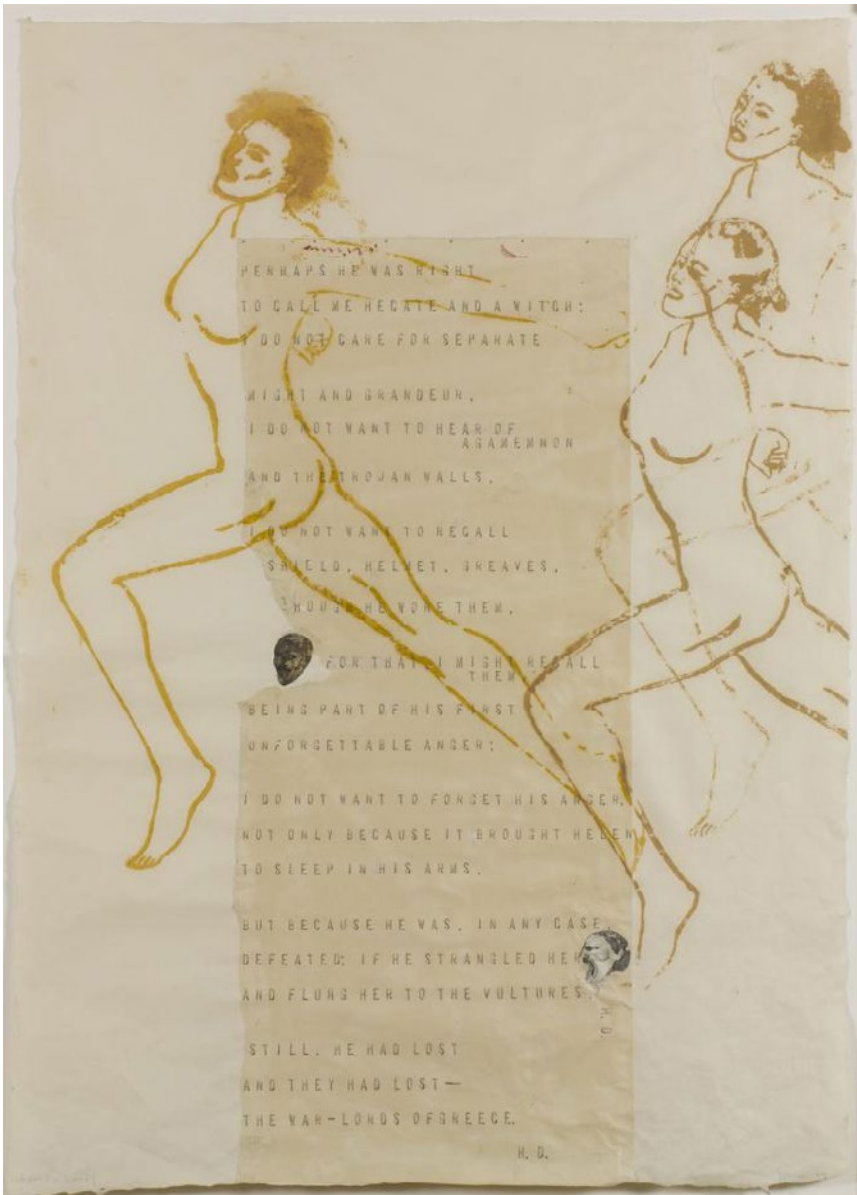 PERHAPS HE WAS RIGHT
TO CALL ME HECATE AND A WITCH:
I DO NOT CARE FOR SEPARATE
MIGHT AND GRANDEUR,
I DO NOT WANT TO HEAR OF
AGAMEMNON
AND THE TROJAN WALLS,
I DO NOT WANT TO RECALL
SHIELD, HELMET, GREAVES,
THOUGH HE WORE THEM,
FOR THAT, I MIGHT RECALL
THEM,
BEING PART OF HIS FIRST
UNFORGETTABLE ANGER;
I DO NOT WANT TO FORGET HIS ANGER,
NOT ONLY BECAUSE IT BROUGHT HELEN
TO SLEEP IN HIS ARMS,
BUT BECAUSE HE WAS, IN ANY CASE,
DEFEATED; IF HE STRANGLED HER
AND FLUNG HER TO THE VULTURES,
H. D.
STILL, HE HAD LOST
AND THEY HAD LOST—
THE WAR-LORDS OFGREECE.
H. D.